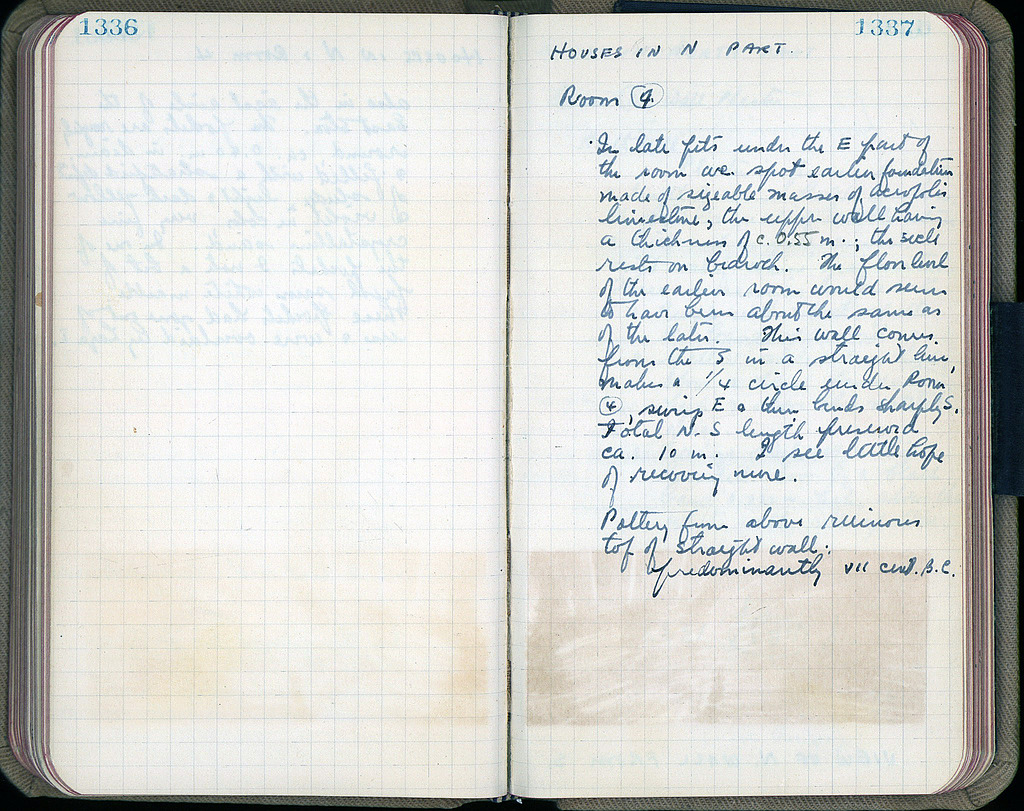 1336
1337
HOUSES IN N PART.
Room 4
In late pits under the E part of
the room we spot earlier foundation
made of sizeable masses of acropolis
limestone, the upper wall having
a thickness of c. 0.55 m.; the socle
rests on bedrock. The floor level
of the earlier room would seem
to have been about the same as
of the later. This wall comes
from the S in a straight line,
makes a 1/4 circle under Room
4, swings E & then bends sharply S.
Total N.S length preserved
ca. 10 m. I see little hope
of recovering more.
Pottery from above ruinous
top of straight wall:
predominantly VII cent. B.C.